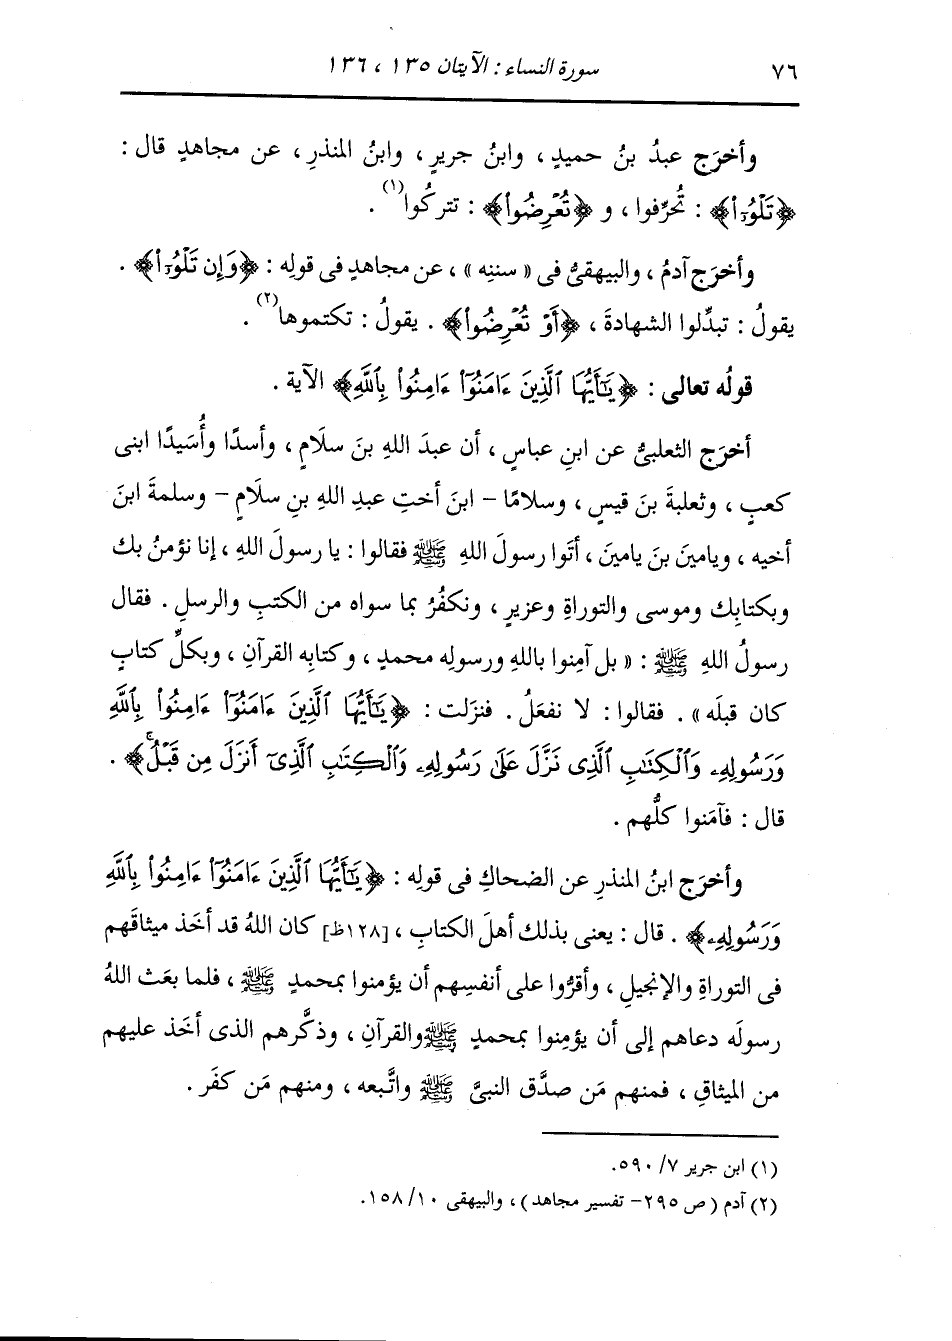 ٧٦ سورة النساء : الآيتان ١٣٥ ، ١٣٦
وأخرَج عبدُ بنُ حميدٍ ، وابنُ جريرٍ ، وابنُ المنذرِ ، عن مجاهدٍ قال :
﴿تَلْوُۥٓا۟﴾ : تُحرِّفوا ، و ﴿تُعْرِضُوا۟﴾ : تتركُوا(١) .
وأخرَج آدمُ ، والبيهقىُّ فى « سننِه » ، عن مجاهدٍ فى قولِه : ﴿وَإِن تَلْوُۥٓا۟﴾ .
يقولُ : تبدِّلوا الشهادةَ ، ﴿أَوْ تُعْرِضُوا۟﴾ . يقولُ : تكتموها(٢) .
قولُه تعالى : ﴿يَـٰٓأَيُّهَا ٱلَّذِينَ ءَامَنُوٓا۟ ءَامِنُوا۟ بِٱللَّهِ﴾ الآية .
أخرَج الثعلبىُّ عن ابنِ عباسٍ ، أن عبدَ اللهِ بنَ سلَامٍ ، وأسدًا وأُسَيدًا ابنى
كعبٍ ، وثعلبةَ بنَ قيسٍ ، وسلامًا – ابنَ أختِ عبدِ اللهِ بنِ سلَامٍ – وسلمةَ ابنَ
أخيه ، ويامينَ بنَ يامينَ ، أتَوا رسولَ اللهِ ﷺ فقالوا : يا رسولَ اللهِ ، إنا نؤمنُ بك
وبكتابِك وموسى والتوراةِ وعزيرٍ ، ونكفُرُ بما سواه من الكتبِ والرسلِ . فقال
رسولُ اللهِ ﷺ : « بل آمِنوا باللهِ ورسولِه محمدٍ ، وكتابِه القرآنِ ، وبكلِّ كتابٍ
كان قبلَه » . فقالوا : لا نفعَلُ . فنزَلت : ﴿يَـٰٓأَيُّهَا ٱلَّذِينَ ءَامَنُوٓا۟ ءَامِنُوا۟ بِٱللَّهِ
وَرَسُولِهِۦ وَٱلْكِتَـٰبِ ٱلَّذِى نَزَّلَ عَلَىٰ رَسُولِهِۦ وَٱلْكِتَـٰبِ ٱلَّذِىٓ أَنزَلَ مِن قَبْلُ ۚ﴾ .
قال : فآمَنوا كلُّهم .
وأخرَج ابنُ المنذرِ عن الضحاكِ فى قولِه : ﴿يَـٰٓأَيُّهَا ٱلَّذِينَ ءَامَنُوٓا۟ ءَامِنُوا۟ بِٱللَّهِ
وَرَسُولِهِۦ﴾ . قال : يعنى بذلك أهلَ الكتابِ ، [١٢٨ظ] كان اللهُ قد أخَذ ميثاقَهم
فى التوراةِ والإنجيلِ ، وأقرُّوا على أنفسِهم أن يؤمنوا بمحمدٍ ﷺ ، فلما بعَث اللهُ
رسولَه دعاهم إلى أن يؤمِنوا بمحمدٍ ﷺ والقرآنِ ، وذكَّرهم الذى أخَذ عليهم
من الميثاقِ ، فمنهم مَن صدَّق النبىَّ ﷺ واتَّبعه ، ومنهم مَن كفَر .
(١) ابن جرير ٧/ ٥٩٠.
(٢) آدم (ص ٢٩٥– تفسير مجاهد) ، والبيهقى ١٠/ ١٥٨.